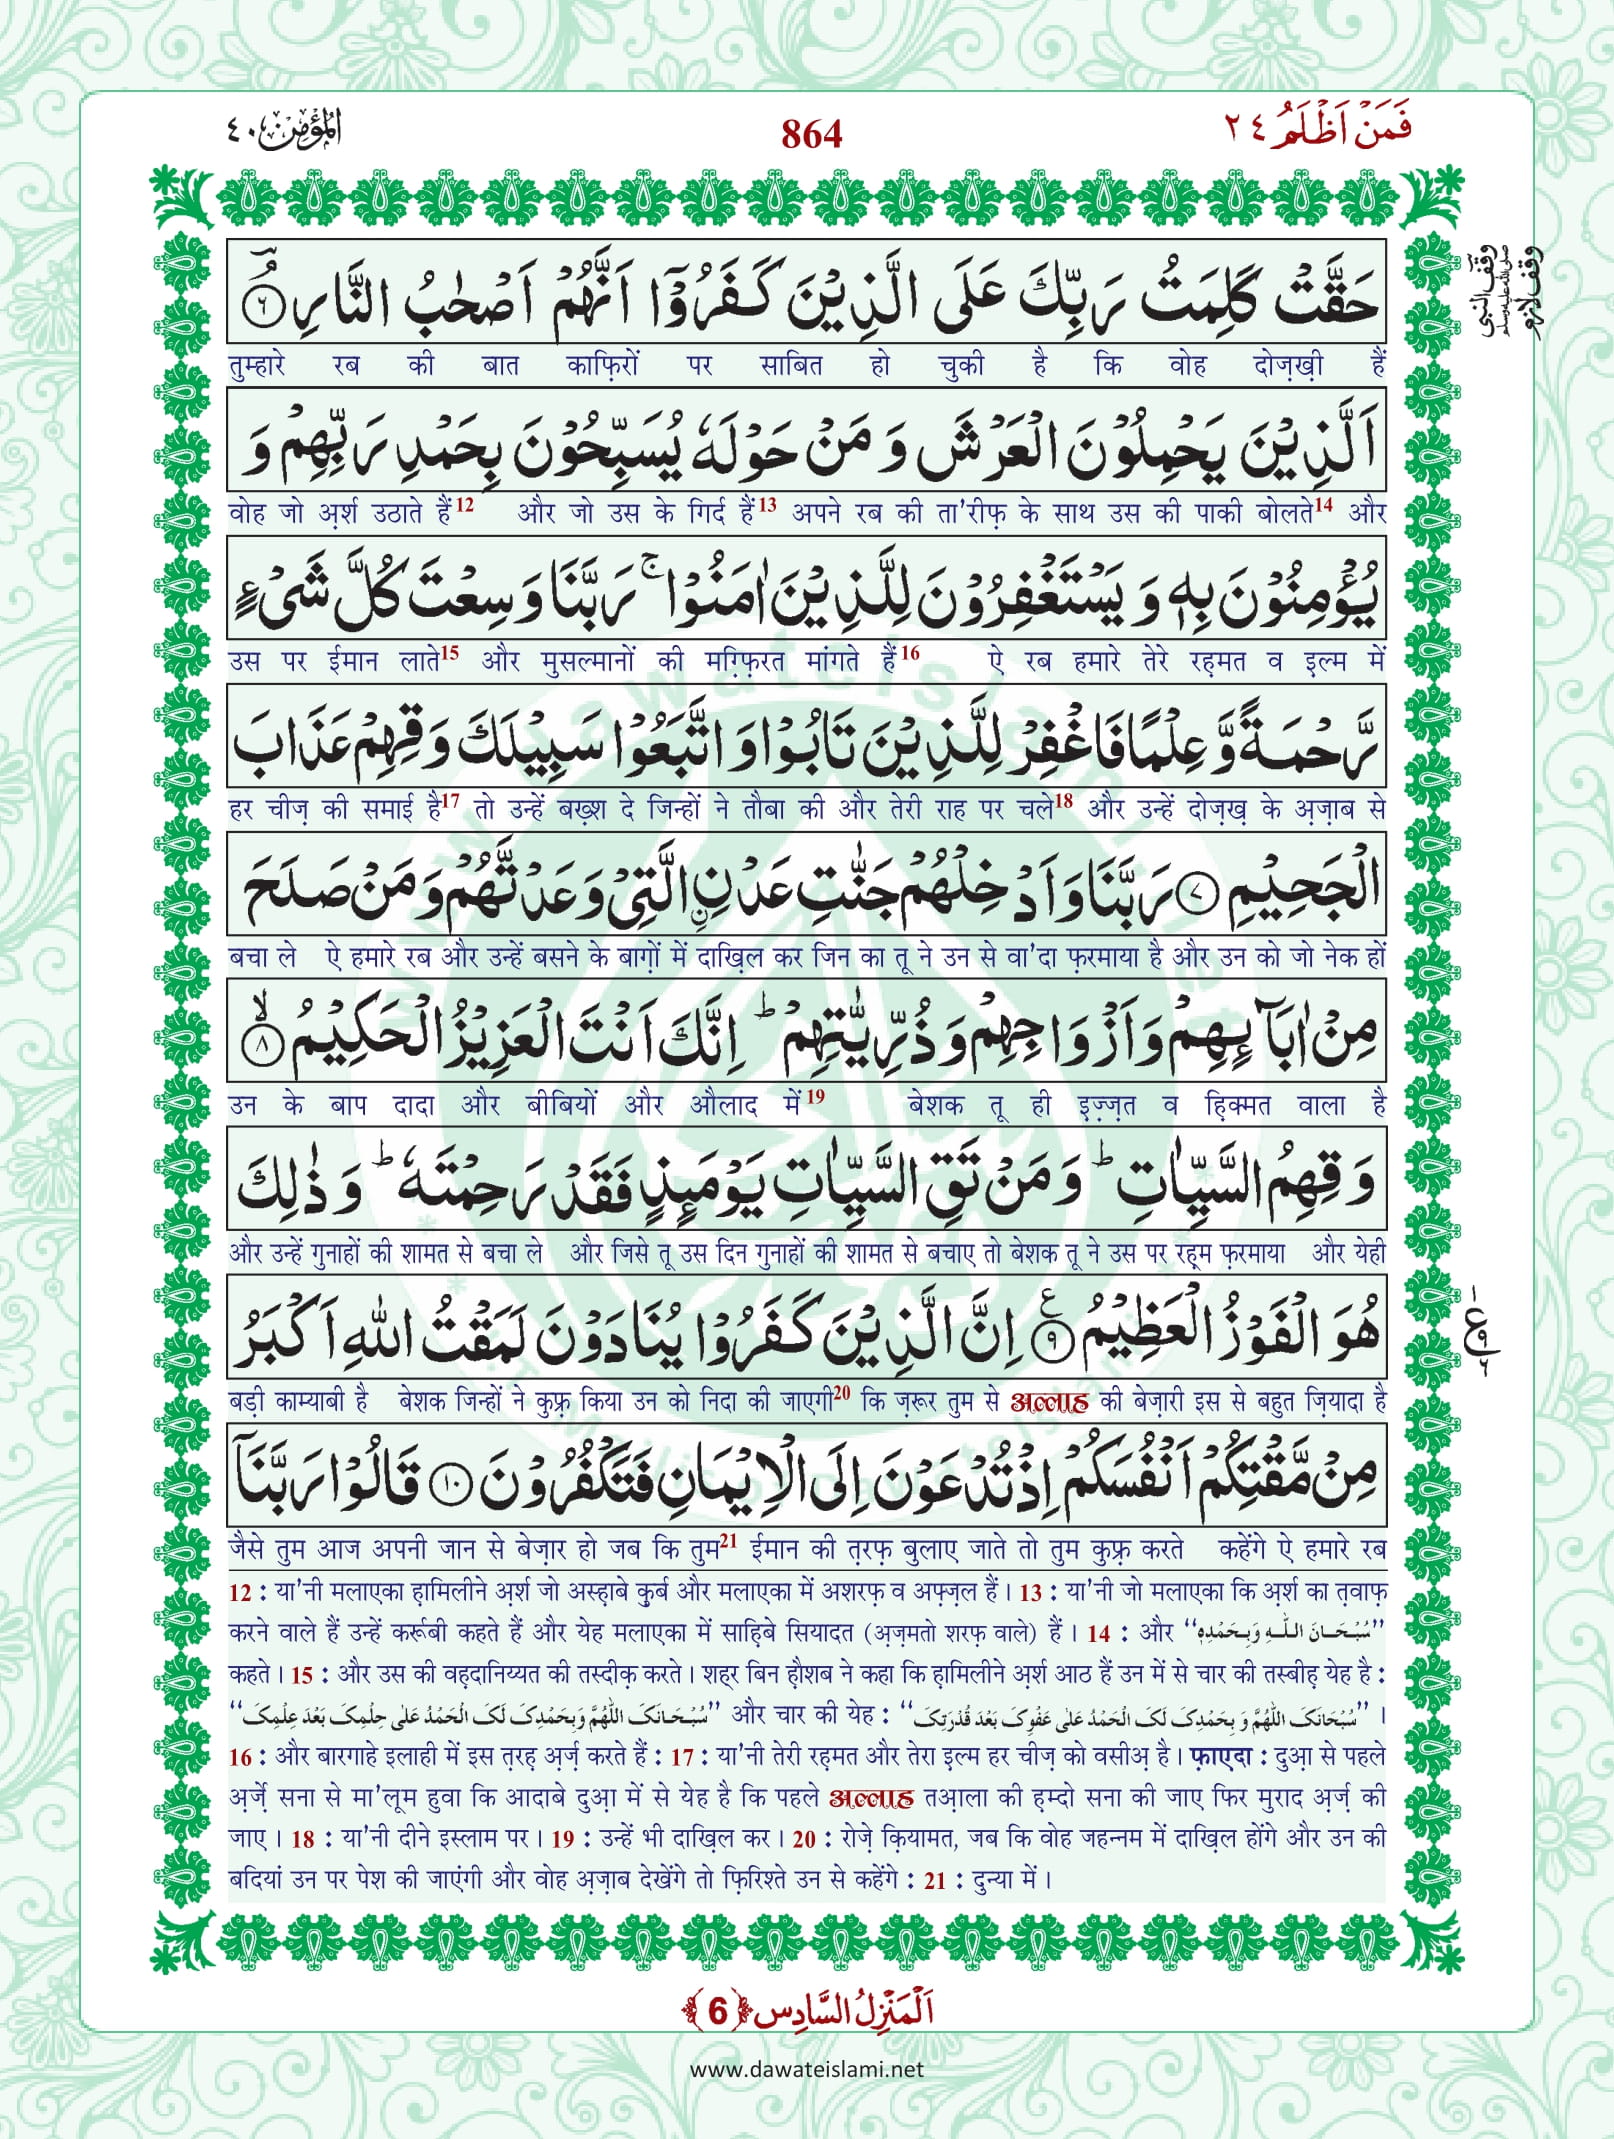 اَلْمُؤْمِن ٤٠ 864 فَمَنْ اَظْلَمُ ٢٤
حَقَّتْ كَلِمَتُ رَبِّكَ عَلَى الَّذِيْنَ كَفَرُوْۤا اَنَّهُمْ اَصْحٰبُ النَّارِ ۘ ﴿۶﴾
وقف النبی صلی اللہ علیہ وسلم
وقف لازم
तुम्हारे रब की बात काफ़िरों पर साबित हो चुकी है कि वोह दोज़ख़ी हैं
اَلَّذِيْنَ يَحْمِلُوْنَ الْعَرْشَ وَ مَنْ حَوْلَهٗ يُسَبِّحُوْنَ بِحَمْدِ رَبِّهِمْ وَ
वोह जो अ़र्श उठाते हैं12 और जो उस के गिर्द हैं13 अपने रब की ता'रीफ़ के साथ उस की पाकी बोलते14 और
يُؤْمِنُوْنَ بِهٖ وَ يَسْتَغْفِرُوْنَ لِلَّذِيْنَ اٰمَنُوْا ۚ رَبَّنَا وَسِعْتَ كُلَّ شَیْءٍ
उस पर ईमान लाते15 और मुसल्मानों की मग़्फ़िरत मांगते हैं16 ऐ रब हमारे तेरे रह़मत व इ़ल्म में
رَّحْمَةً وَّ عِلْمًا فَاغْفِرْ لِلَّذِيْنَ تَابُوْا وَ اتَّبَعُوْا سَبِيْلَكَ وَ قِهِمْ عَذَابَ
हर चीज़ की समाई है17 तो उन्हें बख़्श दे जिन्हों ने तौबा की और तेरी राह पर चले18 और उन्हें दोज़ख़ के अ़ज़ाब से
الْجَحِيْمِ ﴿۷﴾ رَبَّنَا وَ اَدْخِلْهُمْ جَنّٰتِ عَدْنِ ِۨالَّتِیْ وَعَدْتَّهُمْ وَ مَنْ صَلَحَ
बचा ले ऐ हमारे रब और उन्हें बसने के बाग़ों में दाख़िल कर जिन का तू ने उन से वा'दा फ़रमाया है और उन को जो नेक हों
مِنْ اٰبَآئِهِمْ وَ اَزْوَاجِهِمْ وَ ذُرِّيّٰتِهِمْ ؕ اِنَّكَ اَنْتَ الْعَزِيْزُ الْحَكِيْمُ ۙ ﴿۸﴾
उन के बाप दादा और बीबियों और औलाद में19 बेशक तू ही इ़ज़्ज़त व ह़िक्मत वाला है
وَ قِهِمُ السَّيِّاٰتِ ؕ وَ مَنْ تَقِ السَّيِّاٰتِ يَوْمَئِذٍ فَقَدْ رَحِمْتَهٗ ؕ وَ ذٰلِكَ
और उन्हें गुनाहों की शामत से बचा ले और जिसे तू उस दिन गुनाहों की शामत से बचाए तो बेशक तू ने उस पर रह़्म फ़रमाया और येही
هُوَ الْفَوْزُ الْعَظِيْمُ ﴿۹﴾ ع اِنَّ الَّذِيْنَ كَفَرُوْا يُنَادَوْنَ لَمَقْتُ اللّٰهِ اَكْبَرُ
बड़ी काम्याबी है बेशक जिन्हों ने कुफ़्र किया उन को निदा की जाएगी20 कि ज़रूर तुम से अल्लाह की बेज़ारी इस से बहुत ज़ियादा है
مِنْ مَّقْتِكُمْ اَنْفُسَكُمْ اِذْ تُدْعَوْنَ اِلَى الْاِيْمَانِ فَتَكْفُرُوْنَ ﴿۱۰﴾ قَالُوْا رَبَّنَاۤ
जैसे तुम आज अपनी जान से बेज़ार हो जब कि तुम21 ईमान की त़रफ़ बुलाए जाते तो तुम कुफ़्र करते कहेंगे ऐ हमारे रब
12 : या'नी मलाएका ह़ामिलीने अ़र्श जो अस्ह़ाबे क़ुर्ब और मलाएका में अशरफ़ व अफ़्ज़ल हैं। 13 : या'नी जो मलाएका कि अ़र्श का त़वाफ़
करने वाले हैं उन्हें कर्रूबी कहते हैं और येह मलाएका में साह़िबे सियादत (अ़ज़मतो शरफ़ वाले) हैं। 14 : और “سُبْحَانَ اللّٰهِ وَبِحَمْدِهٖ”
कहते। 15 : और उस की वह़दानिय्यत की तस्दीक़ करते। शह्‌र बिन ह़ौशब ने कहा कि ह़ामिलीने अ़र्श आठ हैं उन में से चार की तस्बीह़ येह है :
“سُبْحَانَکَ اللّٰهُمَّ وَبِحَمْدِکَ لَکَ الْحَمْدُ عَلٰی حِلْمِکَ بَعْدَ عِلْمِکَ” और चार की येह : “سُبْحَانَکَ اللّٰهُمَّ وَ بِحَمْدِکَ لَکَ الْحَمْدُ عَلٰی عَفْوِکَ بَعْدَ قُدْرَتِکَ” ।
16 : और बारगाहे इलाही में इस त़रह़ अ़र्ज़ करते हैं : 17 : या'नी तेरी रह़मत और तेरा इ़ल्म हर चीज़ को वसीअ़ है। फ़ाएदा : दुआ़ से पहले
अ़र्ज़े सना से मा'लूम हुवा कि आदाबे दुआ़ में से येह है कि पहले अल्लाह तआ़ला की ह़म्दो सना की जाए फिर मुराद अ़र्ज़ की
जाए। 18 : या'नी दीने इस्लाम पर। 19 : उन्हें भी दाख़िल कर। 20 : रोज़े क़ियामत, जब कि वोह जहन्नम में दाख़िल होंगे और उन की
बदियां उन पर पेश की जाएंगी और वोह अ़ज़ाब देखेंगे तो फ़िरिश्ते उन से कहेंगे : 21 : दुन्या में।
اَلْمَنْزِلُ السَّادِس ﴿6﴾
www.dawateislami.net